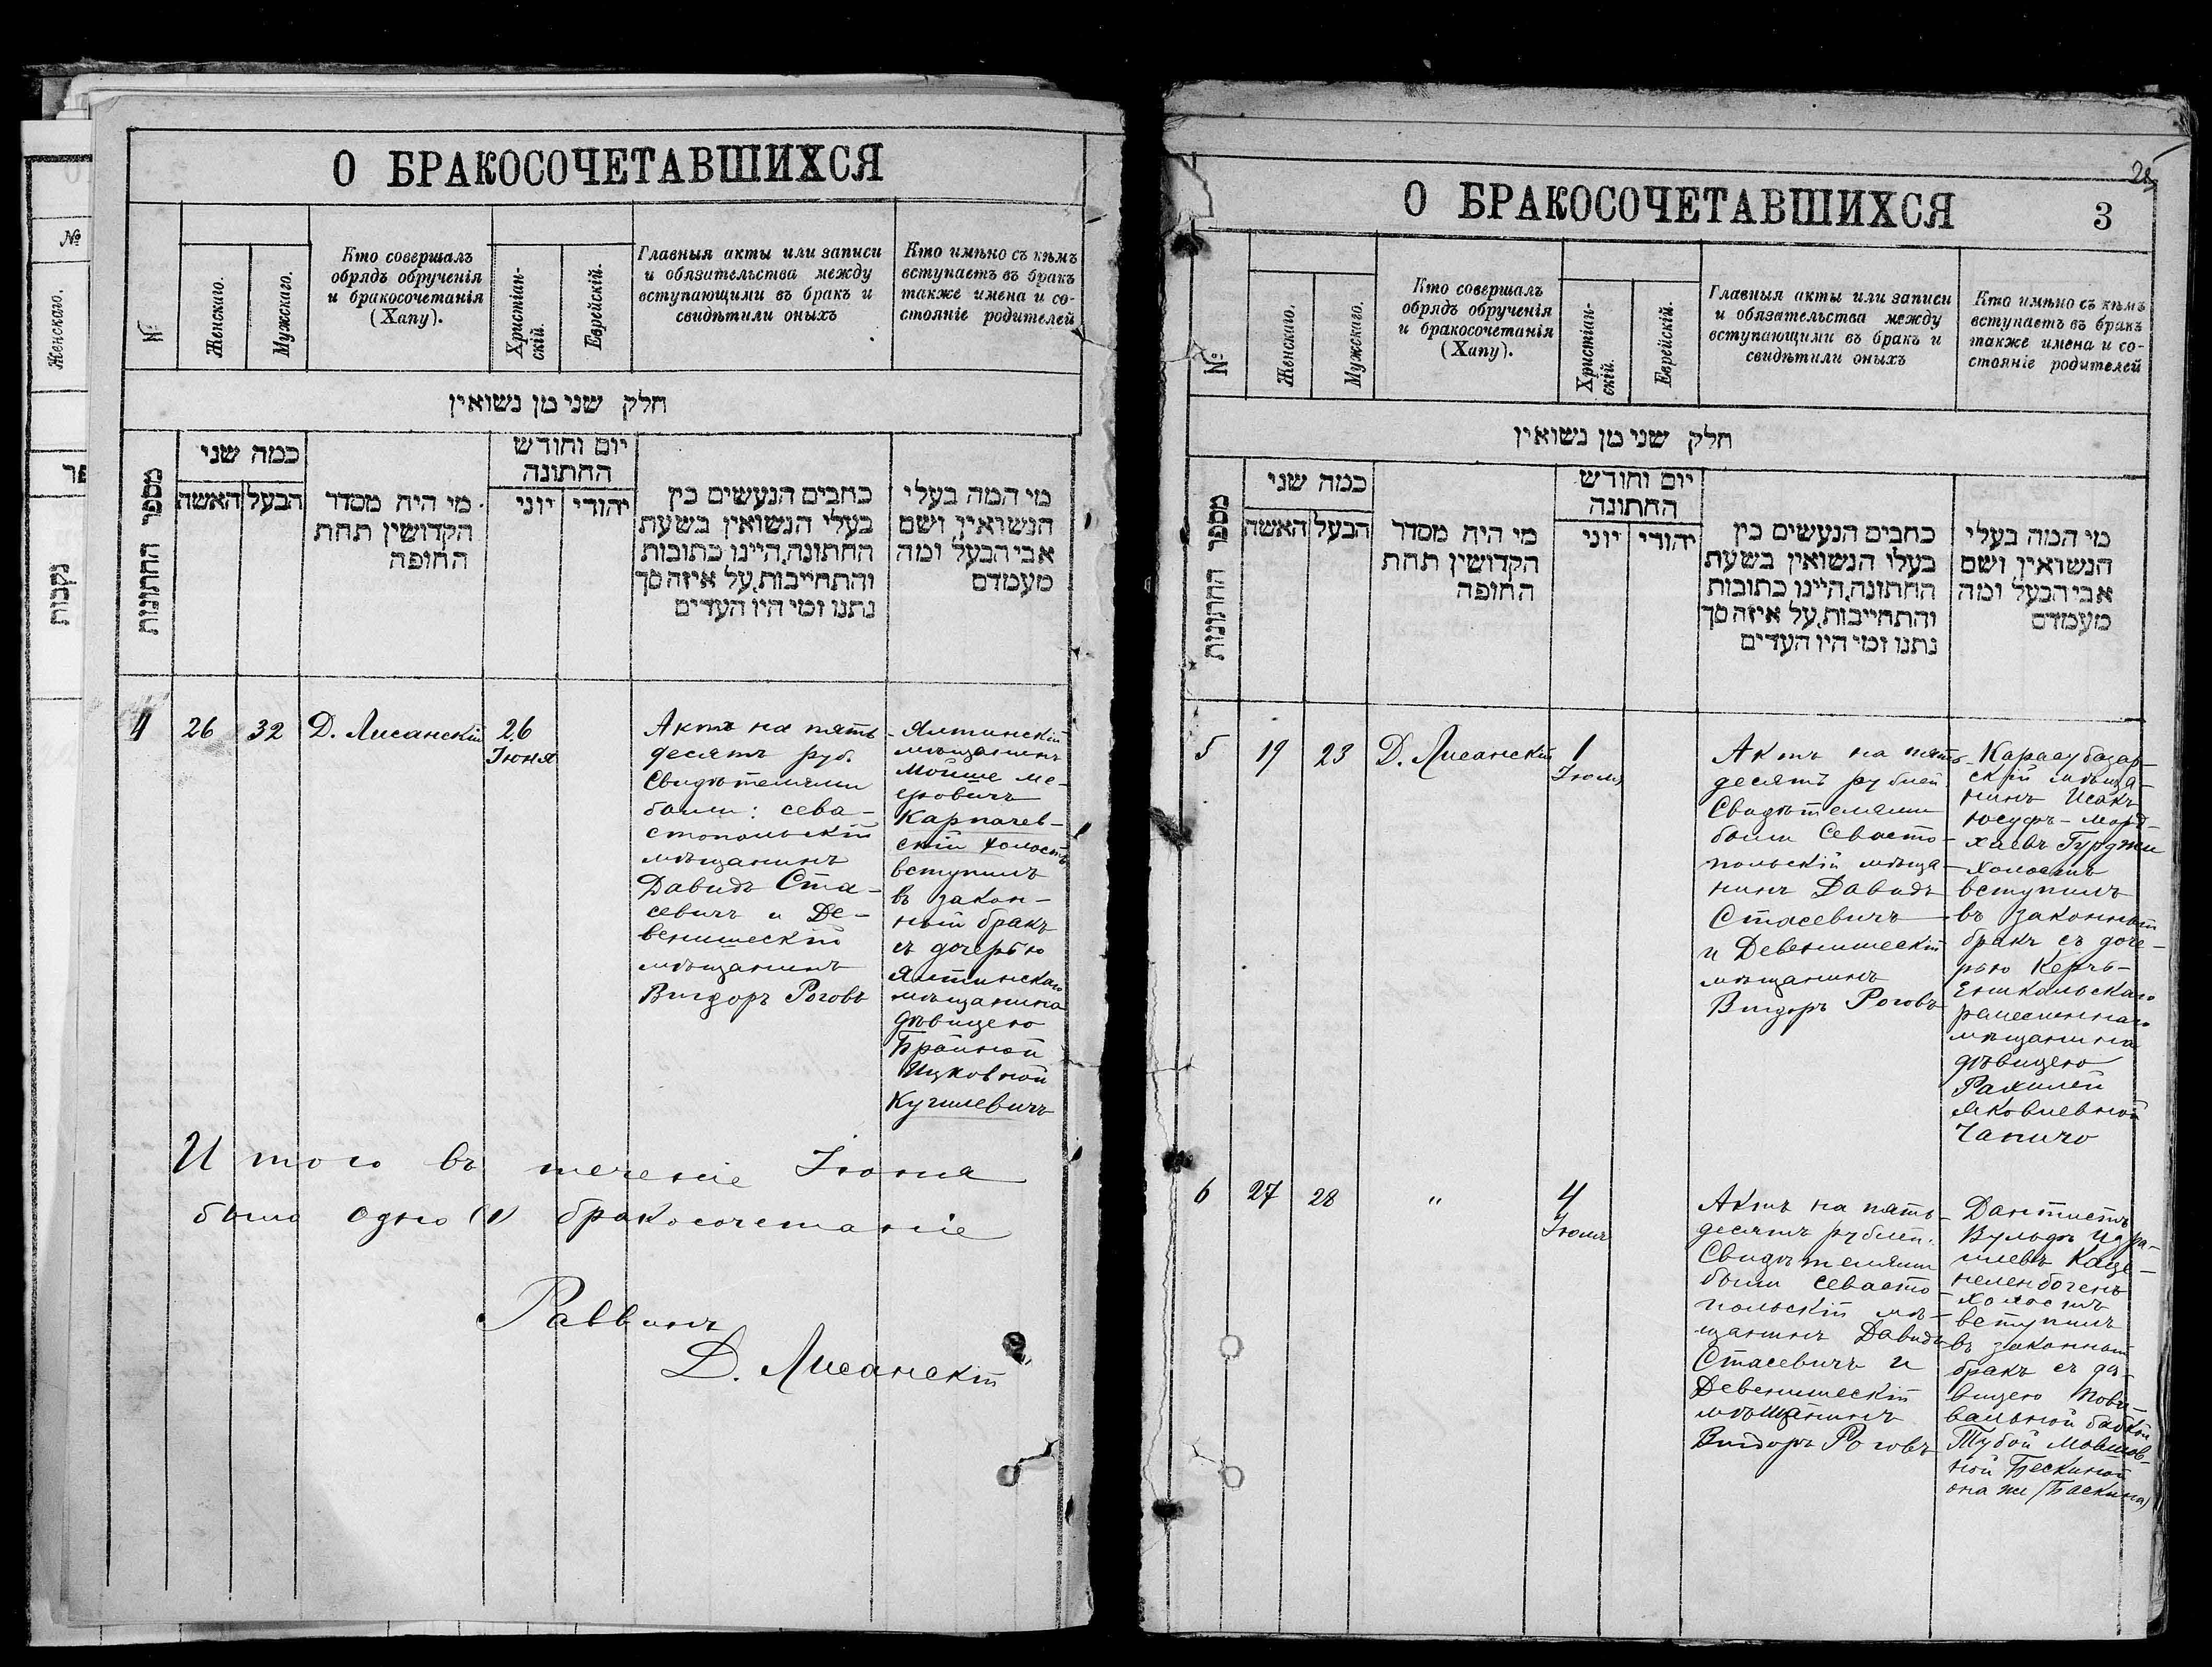 О БРАКОСОЧЕТАВШИХСЯ
№
Женскаго.
Мужскаго.
Кто совершалъ
обрядъ обрученія
и бракосочетанія
(Хапу).
Христіан-
скій.
Еврейскій.
Главныя акты или записи
и обязательства между
вступающими въ бракъ и
свидѣтили оныхъ
Кто имѣно съ кѣмъ
вступаетъ въ бракъ
также имена и со-
стояніе родителей
חלק שני מן נשואין
מספר החתונות
כמה שני
האשה
הבעל
מי היה מסדר
הקדושין תחת
החופה
יום וחודש
החתונה
יוני
יהודי
כתבים הנעשים בין
בעלי הנשואין בשעת
החתונה, היינו כתובות
והתחייבות, על איזה סך
נתנו ומי היו העדים
מי המה בעלי
הנשואין ושם
אבי הבעל ומה
מעמדם
4
26
32
Д. Лисанскій
26
Іюня
Актъ на пять-
десятъ руб.
Свидѣтелями
были: сева-
стопольскій
мѣщанинъ
Давидъ Ста-
севичъ и Де-
венишескій
мѣщанинъ
Вигдоръ Роговъ
Ялтинскій
мѣщанинъ
Мойше Ме-
еровичъ
Карпачев-
скій холостъ
вступилъ
въ закон-
ный бракъ
съ дочерью
Ялтинскаго
мѣщанина
дѣвицею
Брайной
Ицковной
Кугилевичъ
Итого въ теченіе Іюня
было одно (1) бракосочетаніе
Раввинъ
Д. Лисанскій
№
Женскаго.
נקבות
25
О БРАКОСОЧЕТАВШИХСЯ
3
№
Женскаго.
Мужскаго.
Кто совершалъ
обрядъ обрученія
и бракосочетанія
(Хапу).
Христіан-
скій.
Еврейскій.
Главныя акты или записи
и обязательства между
вступающими въ бракъ и
свидѣтили оныхъ
Кто имѣно съ кѣмъ
вступаетъ въ бракъ
также имена и со-
стояніе родителей
חלק שני מן נשואין
מספר החתונות
כמה שני
האשה
הבעל
מי היה מסדר
הקדושין תחת
החופה
יום וחודש
החתונה
יוני
יהודי
כתבים הנעשים בין
בעלי הנשואין בשעת
החתונה, היינו כתובות
והתחייבות, על איזה סך
נתנו ומי היו העדים
מי המה בעלי
הנשואין ושם
אבי הבעל ומה
מעמדם
5
19
23
Д. Лисанскій
1
Іюля
Актъ на пять-
десятъ рублей
Свидѣтелями
были Севасто-
польскій мѣща-
нинъ Давидъ
Стасевичъ
и Девенишескій
мѣщанинъ
Вигдоръ Роговъ
Карасубазар-
скій мѣща-
нинъ Исакъ
Юсуфъ-Морд-
хаевъ Гурджи
холостъ
вступилъ
въ законный
бракъ съ доче-
рью Керчь-
Еникальскаго
ремесленнаго
мѣщанина
дѣвицею
Рахилей
Яковлевной
Чапичо
6
27
28
"
4
Іюля
Актъ на пять-
десятъ рублей.
Свидѣтелями
были Севасто-
польскій мѣ-
щанинъ Давидъ
Стасевичъ и
Девенишескій
мѣщанинъ
Вигдоръ Роговъ
Дантистъ
Вульфъ Изра-
илевъ Каце-
неленбогенъ
холостъ
вступилъ
въ законный
бракъ съ дѣ-
вицею пови-
вальной бабкой
Тубой Мовшов-
ной Бескиной
она же (Баскина)